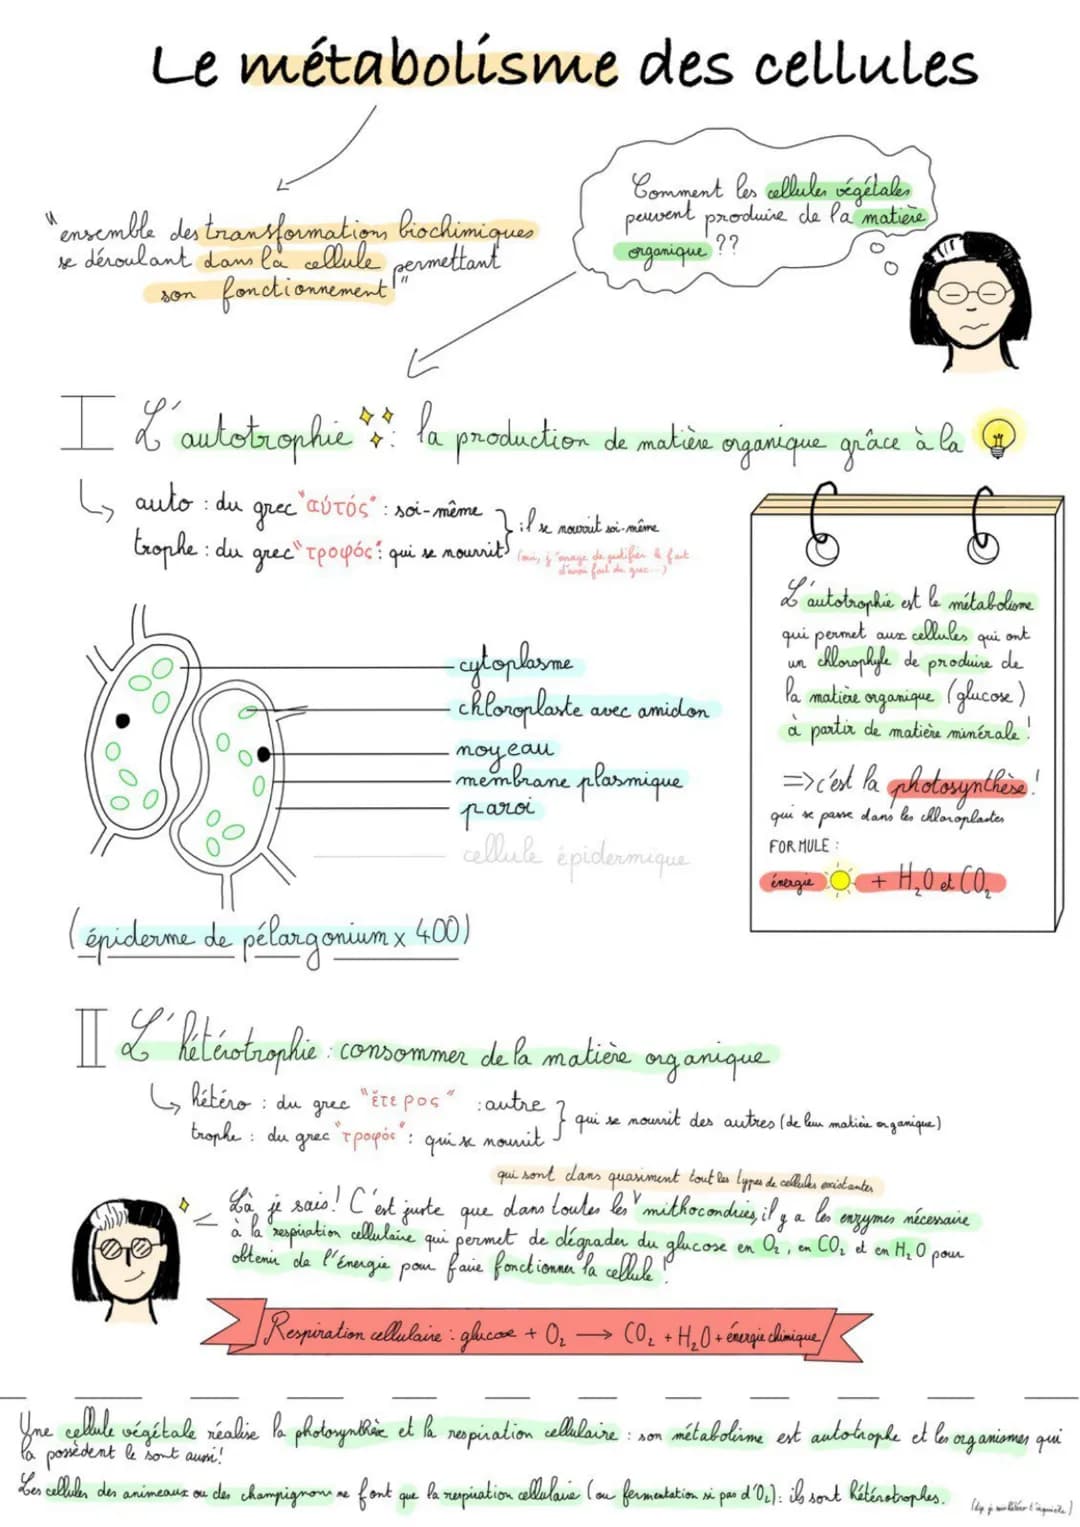 Le métabolisme des cellules
"ensemble des transformations biochimiques
se déroulant dans la cellule permettant
son fonctionnement"
Comment les cellules végétales
peuvent produire de la matière
organique ??
I L'autotrophie : la production de matière organique grâce à la
auto : du grec "αύτός" : soi-même
trophe : du grec "τροφός" : qui se nourrit
il se nourrit soi-même
cytoplasme
chloroplaste avec amidon
noyeau
membrane plasmique
paroi
cellule épidermique
(épiderme de pélargonium x 400)
L'autotrophie est le métabolisme
qui permet aux cellules qui ont
un chlorophyle de produire de
la matière organique (glucose)
à partir de matière minérale !
=> c'est la photosynthèse !
qui se passe dans les chloroplastes
FORMULE :
énergie + H₂O et CO₂
II L'hétérotrophie : consommer de la matière organique
hétéro : du grec "ἕτερος" : autre
trophe : du grec "τροφός" : qui se nourrit
qui se nourrit des autres (de leur matière organique)
qui sont dans quasiment tout les types de cellules existantes
Là je sais! C'est juste que dans toutes les mithocondries, il y a les enzymes nécessaire
à la respiration cellulaire qui permet de dégrader du glucose en O₂, en CO₂ et en H₂O pour
obtenir de l'énergie pour faire fonctionner la cellule !
Respiration cellulaire : glucose + O₂ → CO₂ + H₂O + énergie chimique
Une cellule végétale réalise la photosynthèse et la respiration cellulaire : son métabolisme est autotrophe et les organismes qui
la possèdent le sont aussi!
Les cellules des animeaux ou des champignons ne font que la respiration cellulaire (ou fermentation si pas d'O₂) : ils sont hétérotrophes.